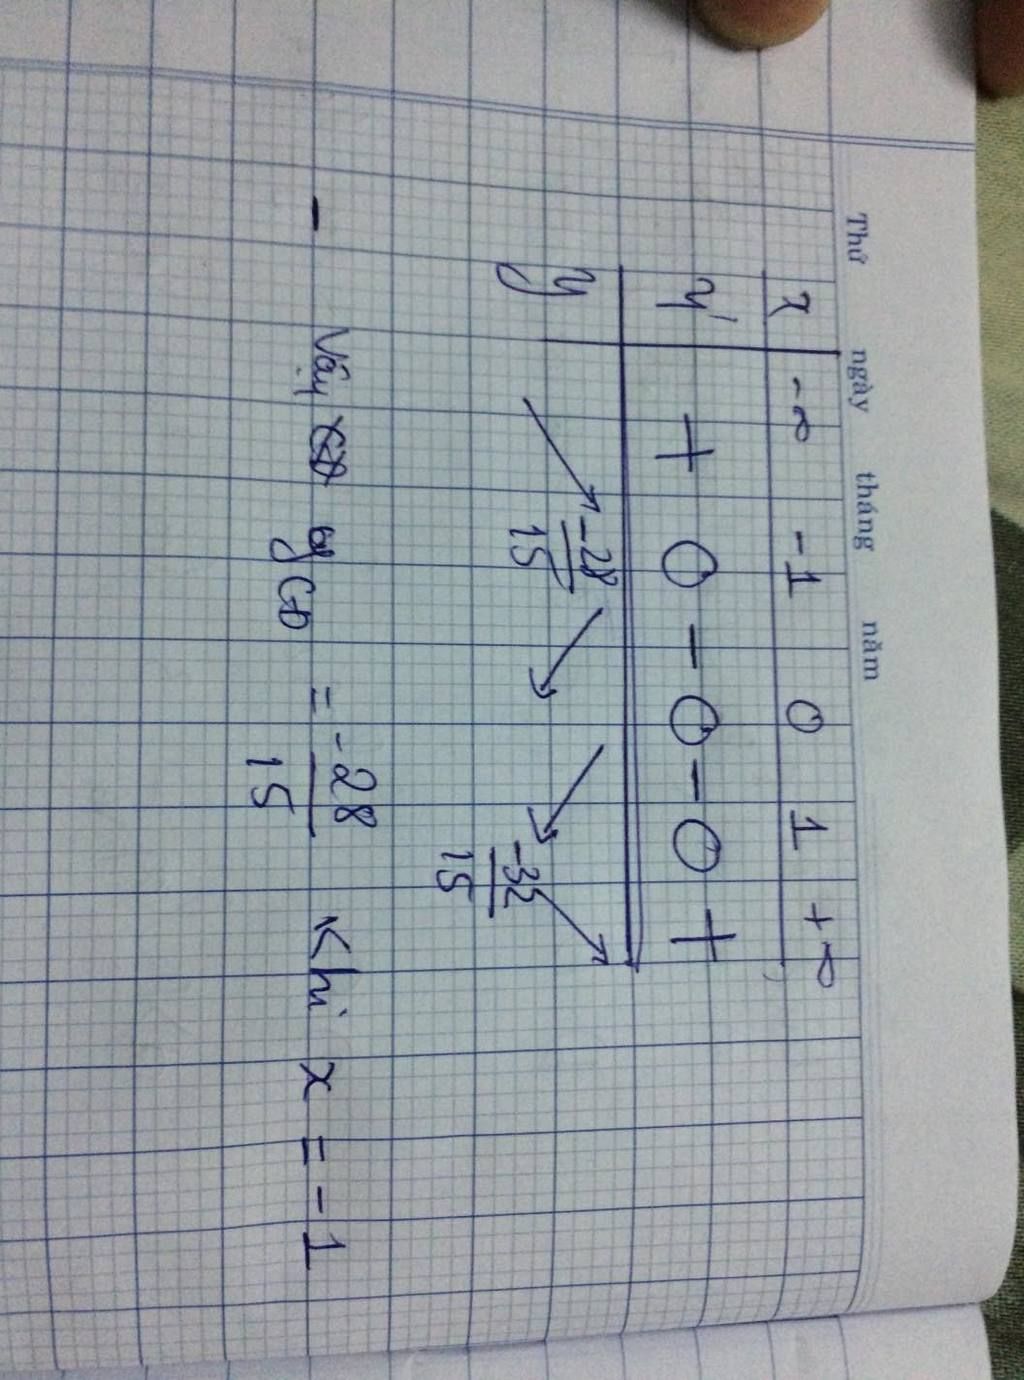 Thứ ngày tháng năm
x -∞ -1 0 1 +∞
y' + 0 - 0 - 0 +
y -28/15 -32/15
- Vậy y CĐ = -28/15 Khi x = -1